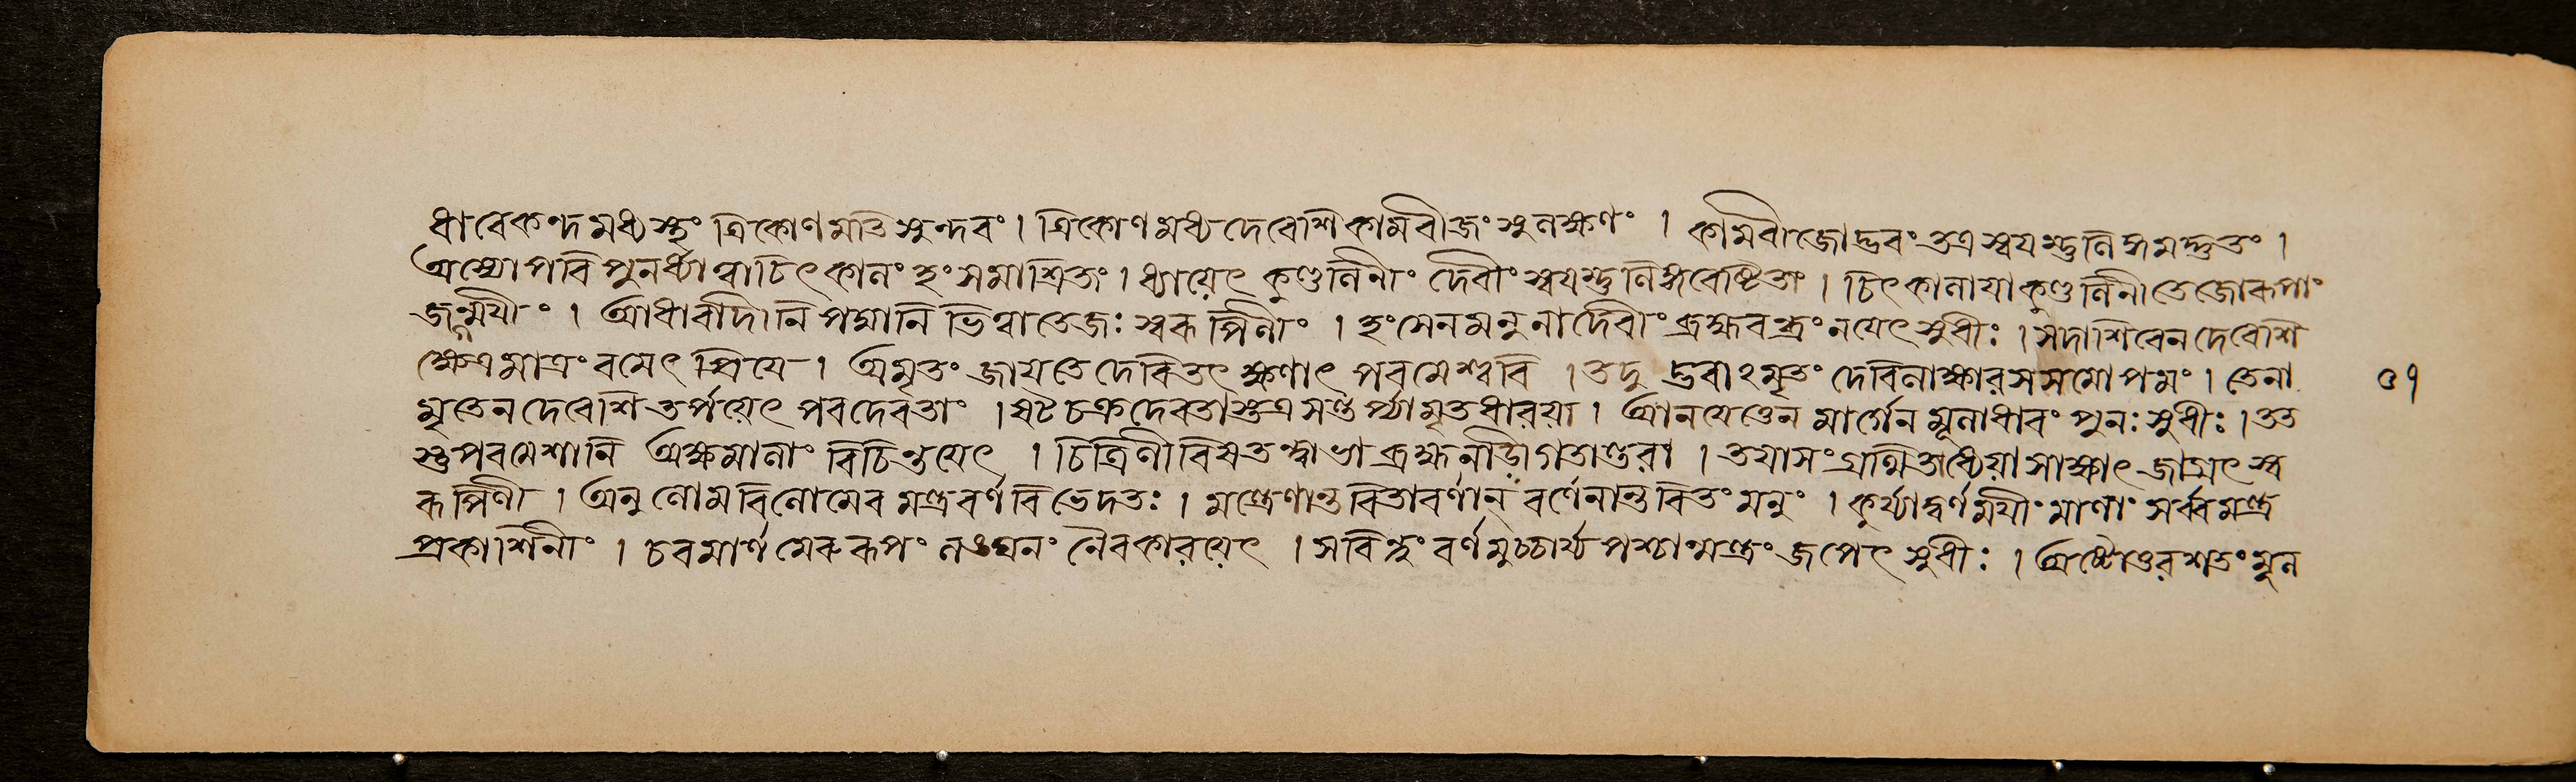 ধারেকন্দমধ্যস্থং ত্রিকোণমতিসুন্দরং । ত্রিকোণমধ্যে দেবেশি কামবীজং সুলক্ষণং । কামবীজোদ্ভবং তত্র স্বয়ম্ভুলিঙ্গমদ্ভুতং ।
তস্যোপরি পুনর্ধ্যাত্বা চিৎকলাং হং সমাশ্রিতাং । ধ্যায়েৎ কুণ্ডলিনীং দেবীং স্বয়ম্ভুলিঙ্গবেষ্টিতাং । চিৎকলায়া কুণ্ডলিনী তেজোরূপাং
জগন্ময়ীং । আধারাদীনি পদ্মানি ভিত্বা তেজঃ স্বরূপিণীং । হংসেন মনুনা দেবীং ব্রহ্মরন্ধ্রং নয়েৎ সুধীঃ । সদাশিবেন দেবেশি
ক্ষণমাত্রং রমেৎ প্রিয়ে । অমৃতং জায়তে দেবি তৎক্ষণাৎ পরমেশ্বরি । তদুদ্ভবাঽমৃতং দেবি লাক্ষারসসমোপমং । তেনা
মৃতেন দেবেশি তর্পয়েৎ পরদেবতাং । ষট্চক্রদেবতাস্তত্র সন্তর্প্যামৃতধারয়া । আনয়েত্তেন মার্গেন মূলাধারং পুনঃ সুধীঃ । তত
স্তু পরমেশানি অক্ষমালাং বিচিন্তয়েৎ । চিত্রিণী বিসতন্ত্বাভা ব্রহ্মনাড়ীগতান্তরা । তয়া সংগ্রথিতা ধ্যেয়া সাক্ষাৎ জাগ্রৎ স্ব
রূপিণী । অনুলোমবিলোমেন মন্ত্রবর্ণবিভেদতঃ । মন্ত্রেণান্তরিতা বর্ণান্ বর্ণেনান্তরিতং মনুং । কুর্য্যাদ্বর্ণময়ীং মালাং সর্ব্বমন্ত্র
প্রকাশিনীং । চরমার্ণ মেরুরূপং লঙ্ঘনং নৈব কারয়েৎ । সবিন্দুং বর্ণমুচ্চার্য্য পশ্চান্মন্ত্রং জপেৎ সুধীঃ । অষ্টোত্তরশতং মূল
৫৭